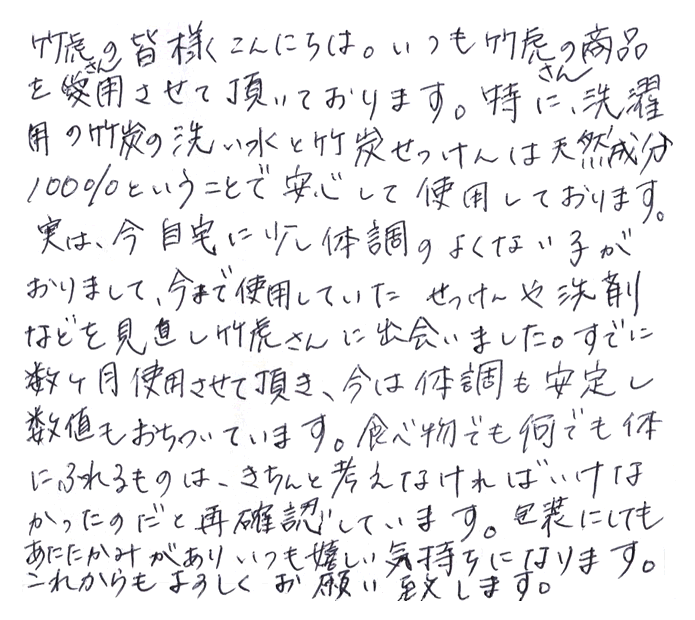 竹虎さんの皆様こんにちは。いつも竹虎さんの商品
を愛用させて頂いております。特に、洗濯
用の竹炭の洗い水と竹炭せっけんは天然成分
100%ということで安心して使用しております。
実は、今自宅に少し体調のよくない子が
おりまして、今まで使用していたせっけんや洗剤
などを見直し竹虎さんに出会いました。すでに
数ヶ月使用させて頂き、今は体調も安定し
数値もおちついています。食べ物でも何でも体
にふれるものは、きちんと考えなければいけな
かったのだと再確認しています。包装にしても
あたたかみがありいつも嬉しい気持ちになります。
これからもよろしくお願い致します。